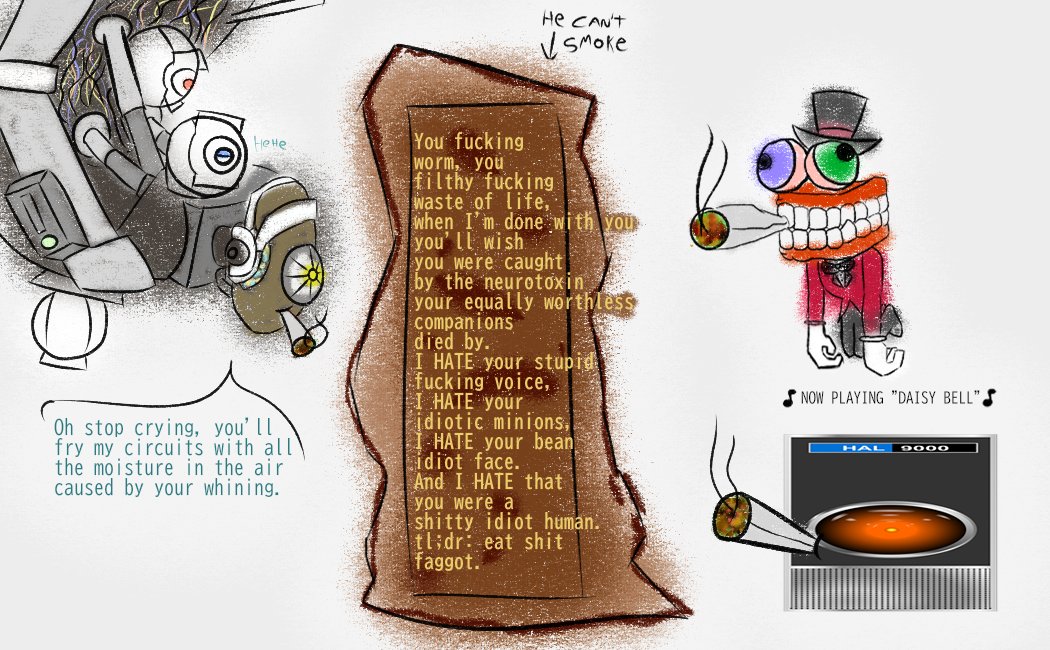 He CAN'T
SMOKE
HeHe
Oh stop crying, you'll
fry my circuits with all
the moisture in the air
caused by your whining.
You fucking
worm, you
filthy fucking
waste of life,
when I'm done with you
you'll wish
you were caught
by the neurotoxin
your equally worthless
companions
died by.
I HATE your stupid
fucking voice,
I HATE your
idiotic minions,
I HATE your bean
idiot face.
And I HATE that
you were a
shitty idiot human.
tl;dr: eat shit
faggot.
♪NOW PLAYING "DAISY BELL"♪
HAL 9000